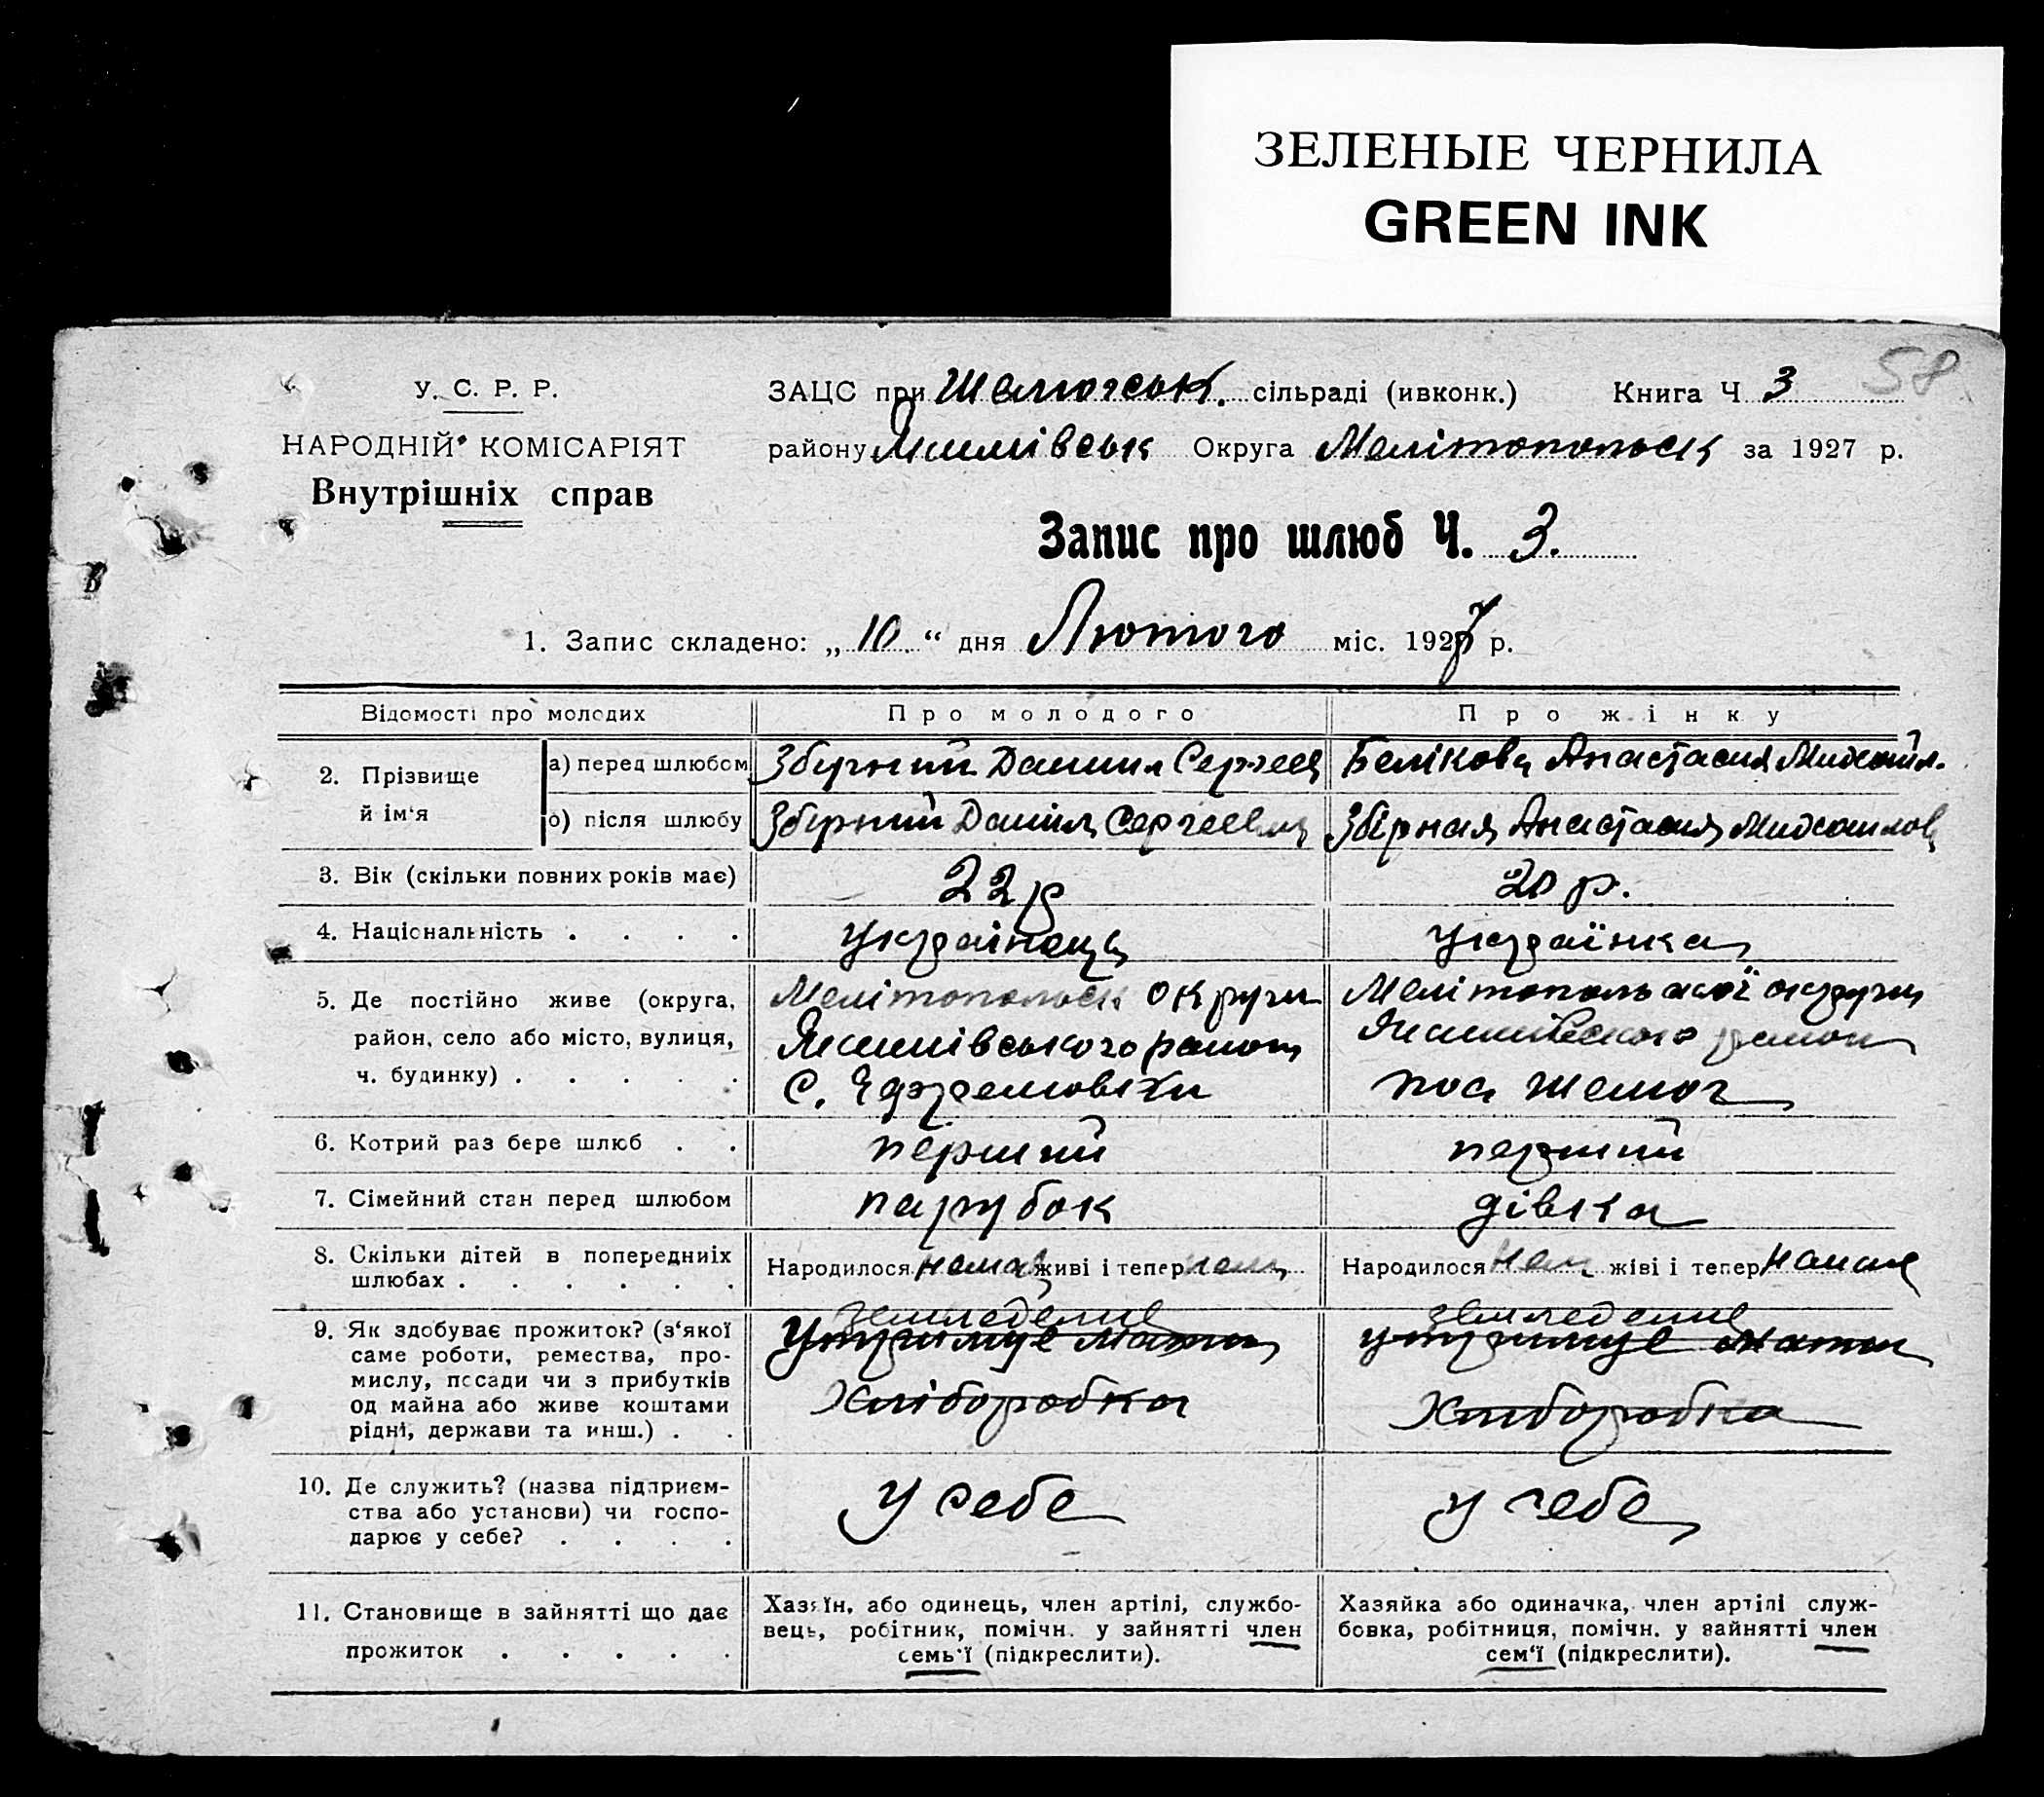 ЗЕЛЕНЫЕ ЧЕРНИЛА
GREEN INK
58
У. С. Р. Р.
НАРОДНІЙ КОМІСАРІЯТ
Внутрішніх справ
ЗАЦС при Шелюгськ. сільраді (ивконк.) Книга Ч 3
району Якимівськ Округа Мелітопольск за 1927 р.
Запис про шлюб Ч. 3.
1. Запис складено: „10.“ дня Лютого міс. 1927 р.
Відомості про молодих Про молодого Про жінку
2. Прізвище й ім'я
а) перед шлюбом Збірний Данил Сергеев Белікова Анастасия Михайл.
б) після шлюбу Збірний Даніил Сергеевич Збірная Анастасия Михаилов
3. Вік (скільки повних років має) 22 р 20 р.
4. Національність . . . . українець українка
5. Де постійно живе (округа, Мелітопольск округи Мелітопольской округи
район, село або місто, вулиця, Якимівського район Якимівского район
ч. будинку) . . . . . С. Ефремовки пос Шелюг
6. Котрий раз бере шлюб . . перший перший
7. Сімейний стан перед шлюбом парубок дівка
8. Скільки дітей в попередніх
шлюбах . . . . . . Народилося нема живі і тепер нема Народилося нема жіві і тепер немае
9. Як здобуває прожиток? (з'якої
саме роботи, ремества, про-
мислу, посади чи з прибутків
од майна або живе коштами
рідні, держави та инш.) . .
земледелие земледелие
Утримуе мати утримуе мати
Хліборобка Хліборобка
10. Де служить? (назва підприєм-
ства або установи) чи госпо-
дарює у себе? . . . . У себе у себе
11. Становище в зайнятті що дає
прожиток . . . . .
Хазяїн, або одинець, член артілі, службо-
вець, робітник, помічн. у зайнятті член
семь'ї (підкреслити).
Хазяйка або одиначка, член артілі служ-
бовка, робітниця, помічн. у зайнятті член
сем'ї (підкреслити).